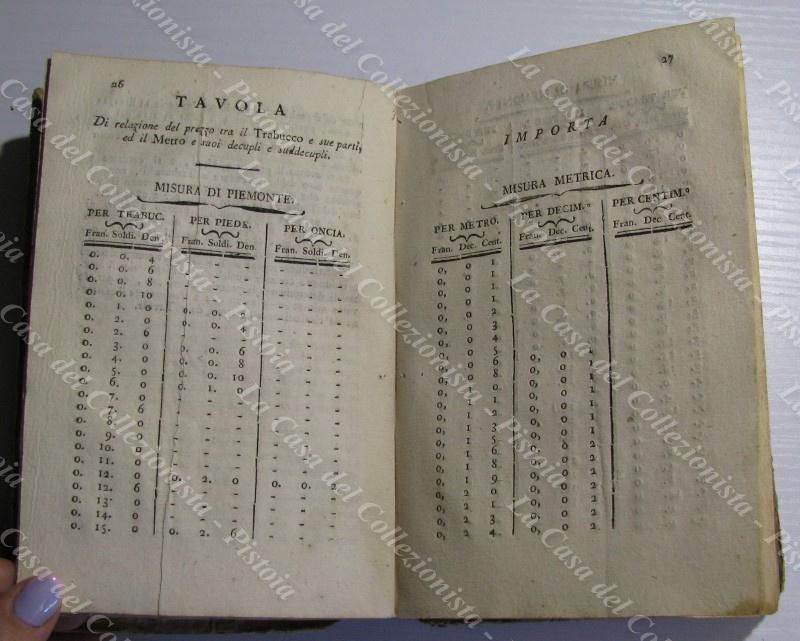 26
TAVOLA
Di relazione del prezzo tra il Trabucco e sue parti,
ed il Metro e suoi decupli e suddecupli.
MISURA DI PIEMONTE.
PER TRABUC. PER PIEDE. PER ONCIA.
Fran. Soldi. Den. Fran. Soldi. Den. Fran. Soldi. Den.
0. 0. 4 - - - - - -
0. 0. 6 - - - - - -
0. 0. 8 - - - - - -
0. 0. 10 - - - - - -
0. 1. 0 - - - - - -
0. 2. 0 0. 0. 4 - - -
0. 3. 0 0. 0. 6 - - -
0. 4. 0 0. 0. 8 - - -
0. 5. 0 0. 0. 10 - - -
0. 6. 0 0. 1. 0 - - -
0. 7. 0 - - - - - -
0. 7. 6 - - - - - -
0. 8. 0 - - - - - -
0. 9. 0 - - - - - -
0. 10. 0 - - - - - -
0. 11. 0 - - - - - -
0. 12. 0 0. 2. 0 0. 0. 2
0. 12. 6 - - - - - -
0. 13. 0 - - - - - -
0. 14. 0 - - - - - -
0. 15. 0 0. 2. 6 - - -
27
IMPORTA
MISURA METRICA.
PER METRO. PER DECIM.° PER CENTIM.°
Fran. Dec. Cent. Fran. Dec. Cent. Fran. Dec. Cent.
0, 0 1
0, 0 1
0, 0 1
0, 0 1
0, 0 2
0, 0 3
0, 0 4
0, 0 5 0, 0 1
0, 0 6 0, 0 1
0, 0 8 0, 0 1
0, 1 0 0, 0 1
0, 1 1 0, 0 1
0, 1 2 0, 0 1
0, 1 3 0, 0 1
0, 1 5 0, 0 2
0, 1 6 0, 0 2
0, 1 8 0, 0 2
0, 1 9 0, 0 2
0, 2 0 0, 0 2
0, 2 1 0, 0 2
0, 2 3 0, 0 2
0, 2 4 0, 0 2
La Casa del Collezionista - Pistoia